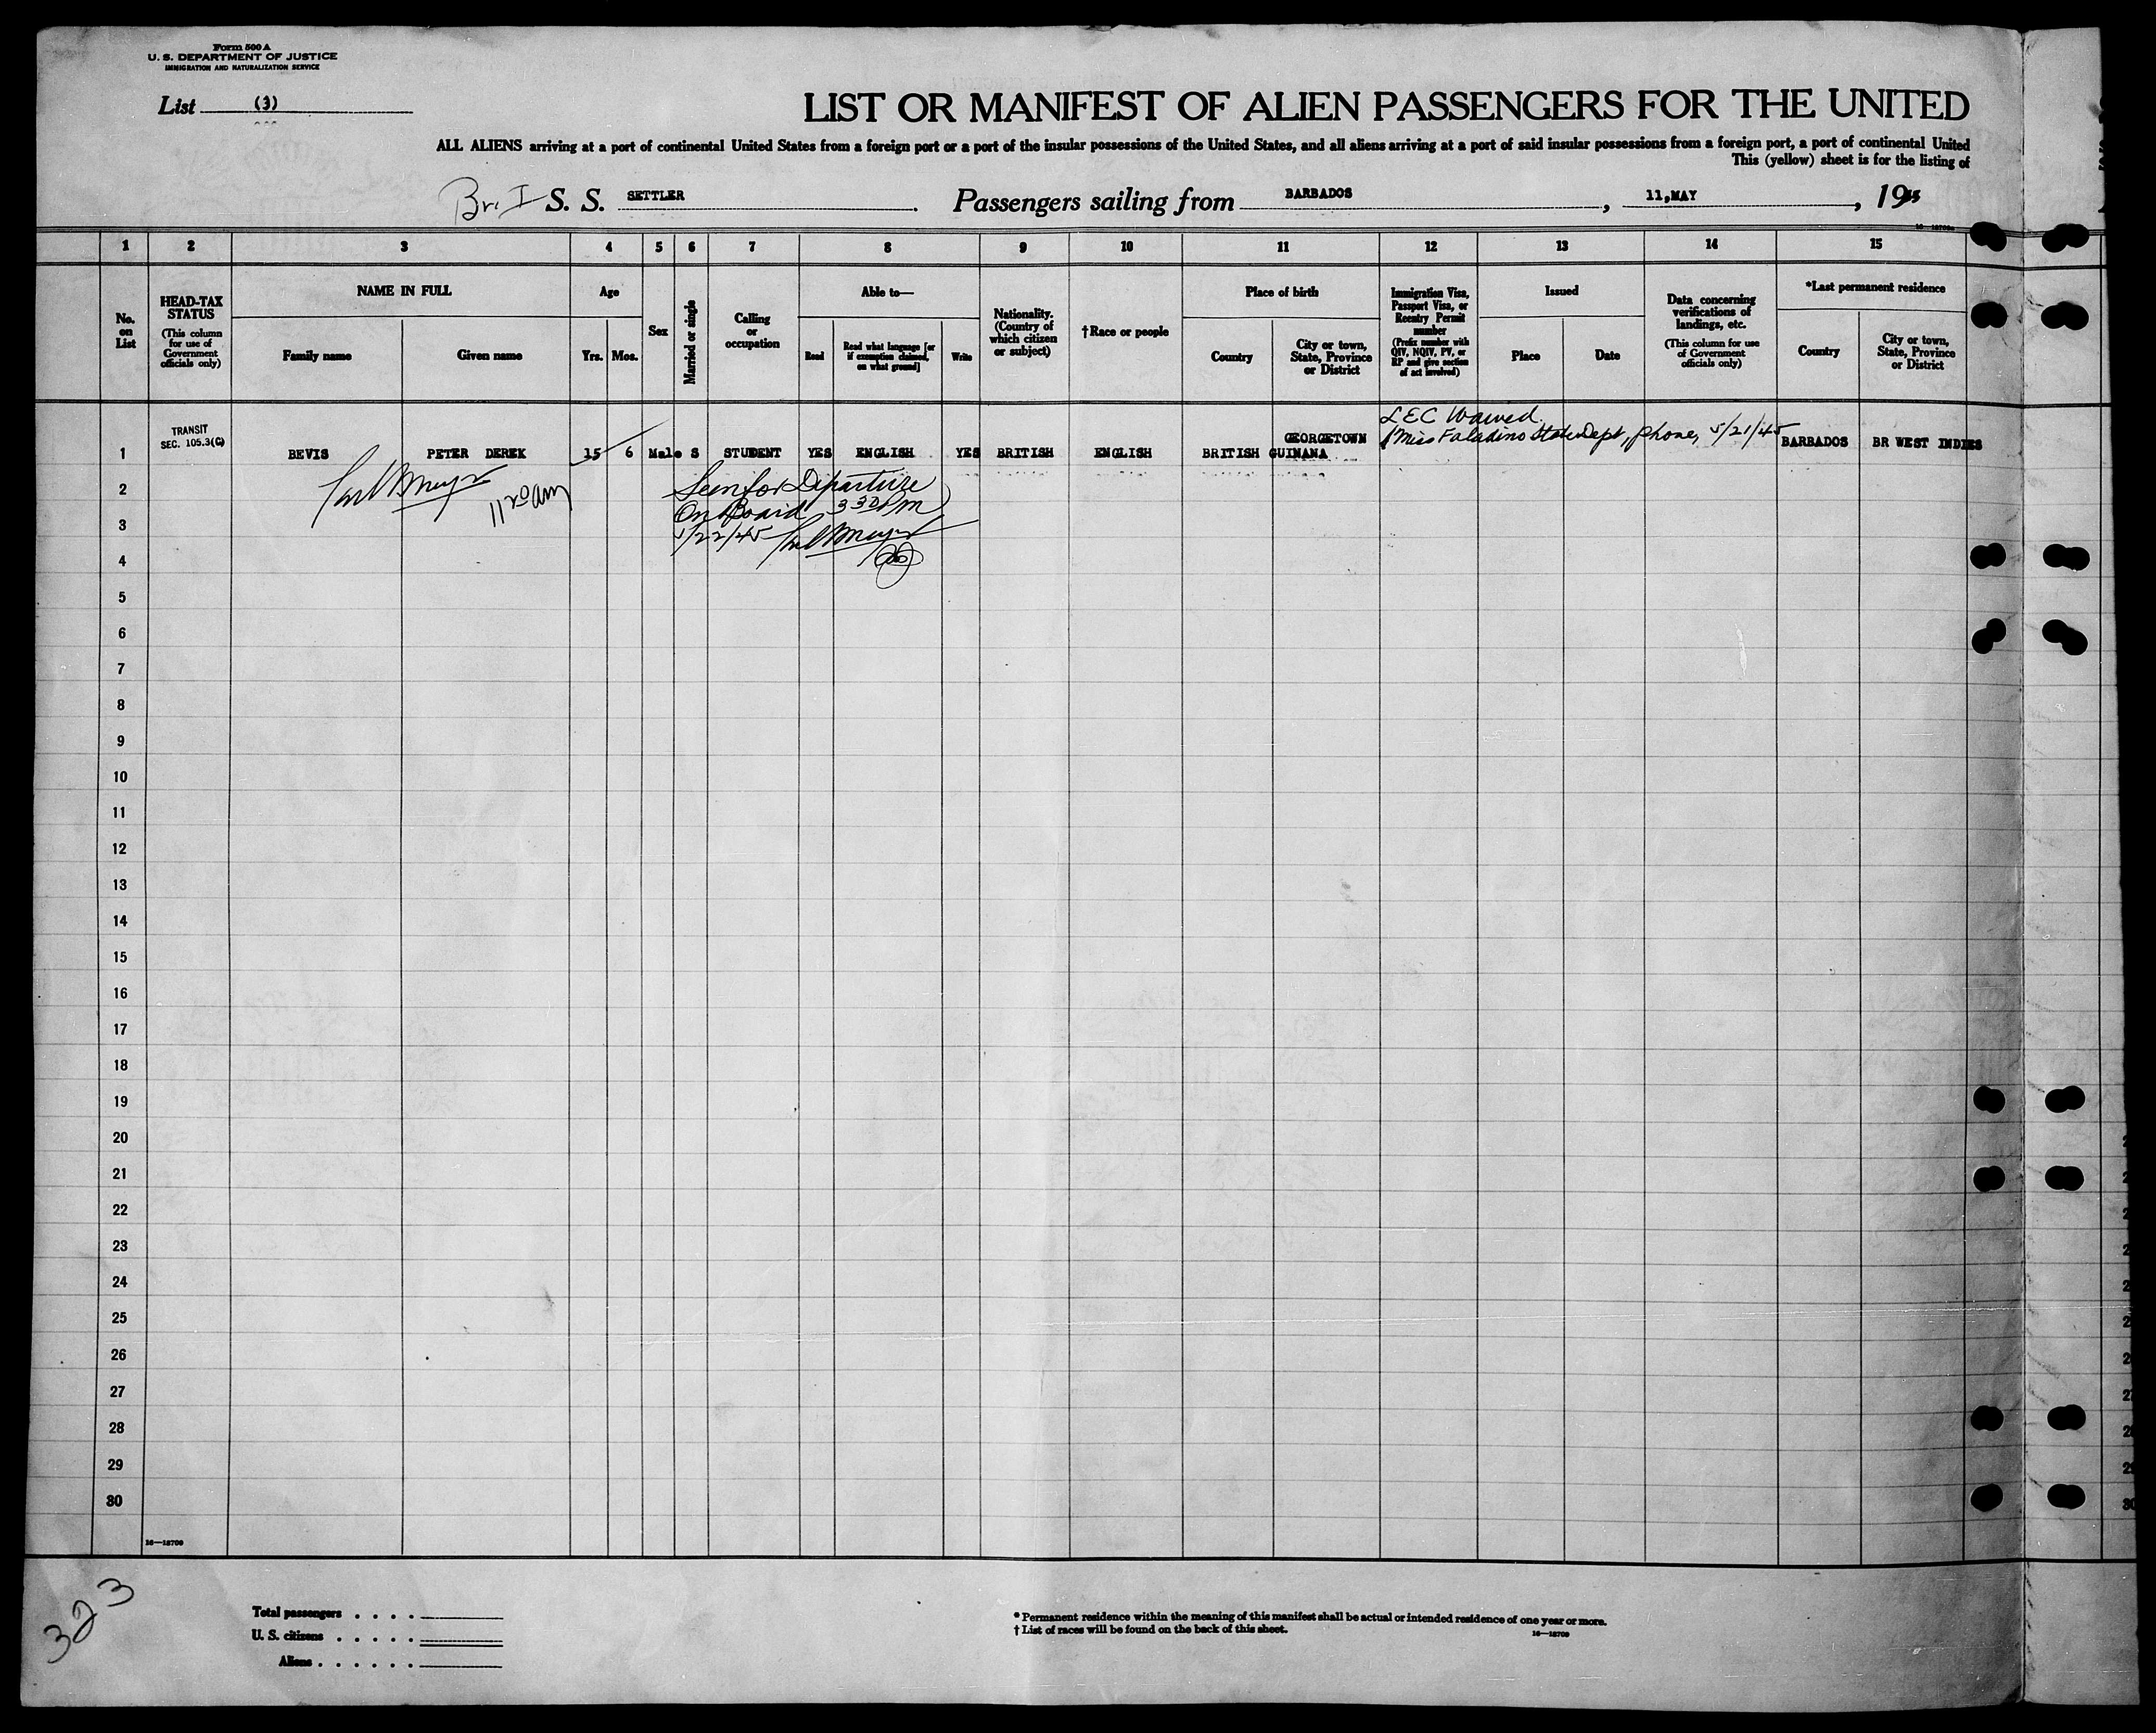 Form 500 A
U. S. DEPARTMENT OF JUSTICE
IMMIGRATION AND NATURALIZATION SERVICE
List (3)
LIST OR MANIFEST OF ALIEN PASSENGERS FOR THE UNITED
ALL ALIENS arriving at a port of continental United States from a foreign port or a port of the insular possessions of the United States, and all aliens arriving at a port of said insular possessions from a foreign port, a port of continental United
This (yellow) sheet is for the listing of
Br. S. S. SETTLER. Passengers sailing from BARBADOS, 11,MAY, 1945
1 2 3 4 5 6 7 8 9 10 11 12 13 14 15
No. on List
HEAD-TAX STATUS
(This column for use of Government officials only)
NAME IN FULL
Family name
Given name
Age
Yrs.
Mos.
Sex
Married or single
Calling or occupation
Able to—
Read
Read what language [or if exemption claimed, on what ground]
Write
Nationality. (Country of which citizen or subject)
†Race or people
Place of birth
Country
City or town, State, Province or District
Immigration Visa, Passport Visa, or Reentry Permit number
(Prefix number with QIV, NQIV, PV, or RP and give section of act involved)
Issued
Place
Date
Data concerning verifications of landings, etc.
(This column for use of Government officials only)
*Last permanent residence
Country
City or town, State, Province or District
LEC Waived
TRANSIT
SEC. 105.3(C)
GEORGETOWN
Miss Faladino State Dept, phone, 5/21/45
1 BEVIS PETER DEREK 15 6 Male S STUDENT YES ENGLISH YES BRITISH ENGLISH BRITISH GUINANA BARBADOS BR WEST INDIES
11 20 am
2 Seen for Departure
On Board 3 30 Pm
3 5/22/45
4
5
6
7
8
9
10
11
12
13
14
15
16
17
18
19
20
21
22
23
24
25
26
27
28
29
30
16—18709
323
Total passengers . . . .
U. S. citizens . . . . .
Aliens . . . . . .
* Permanent residence within the meaning of this manifest shall be actual or intended residence of one year or more.
† List of races will be found on the back of this sheet.
16—18709